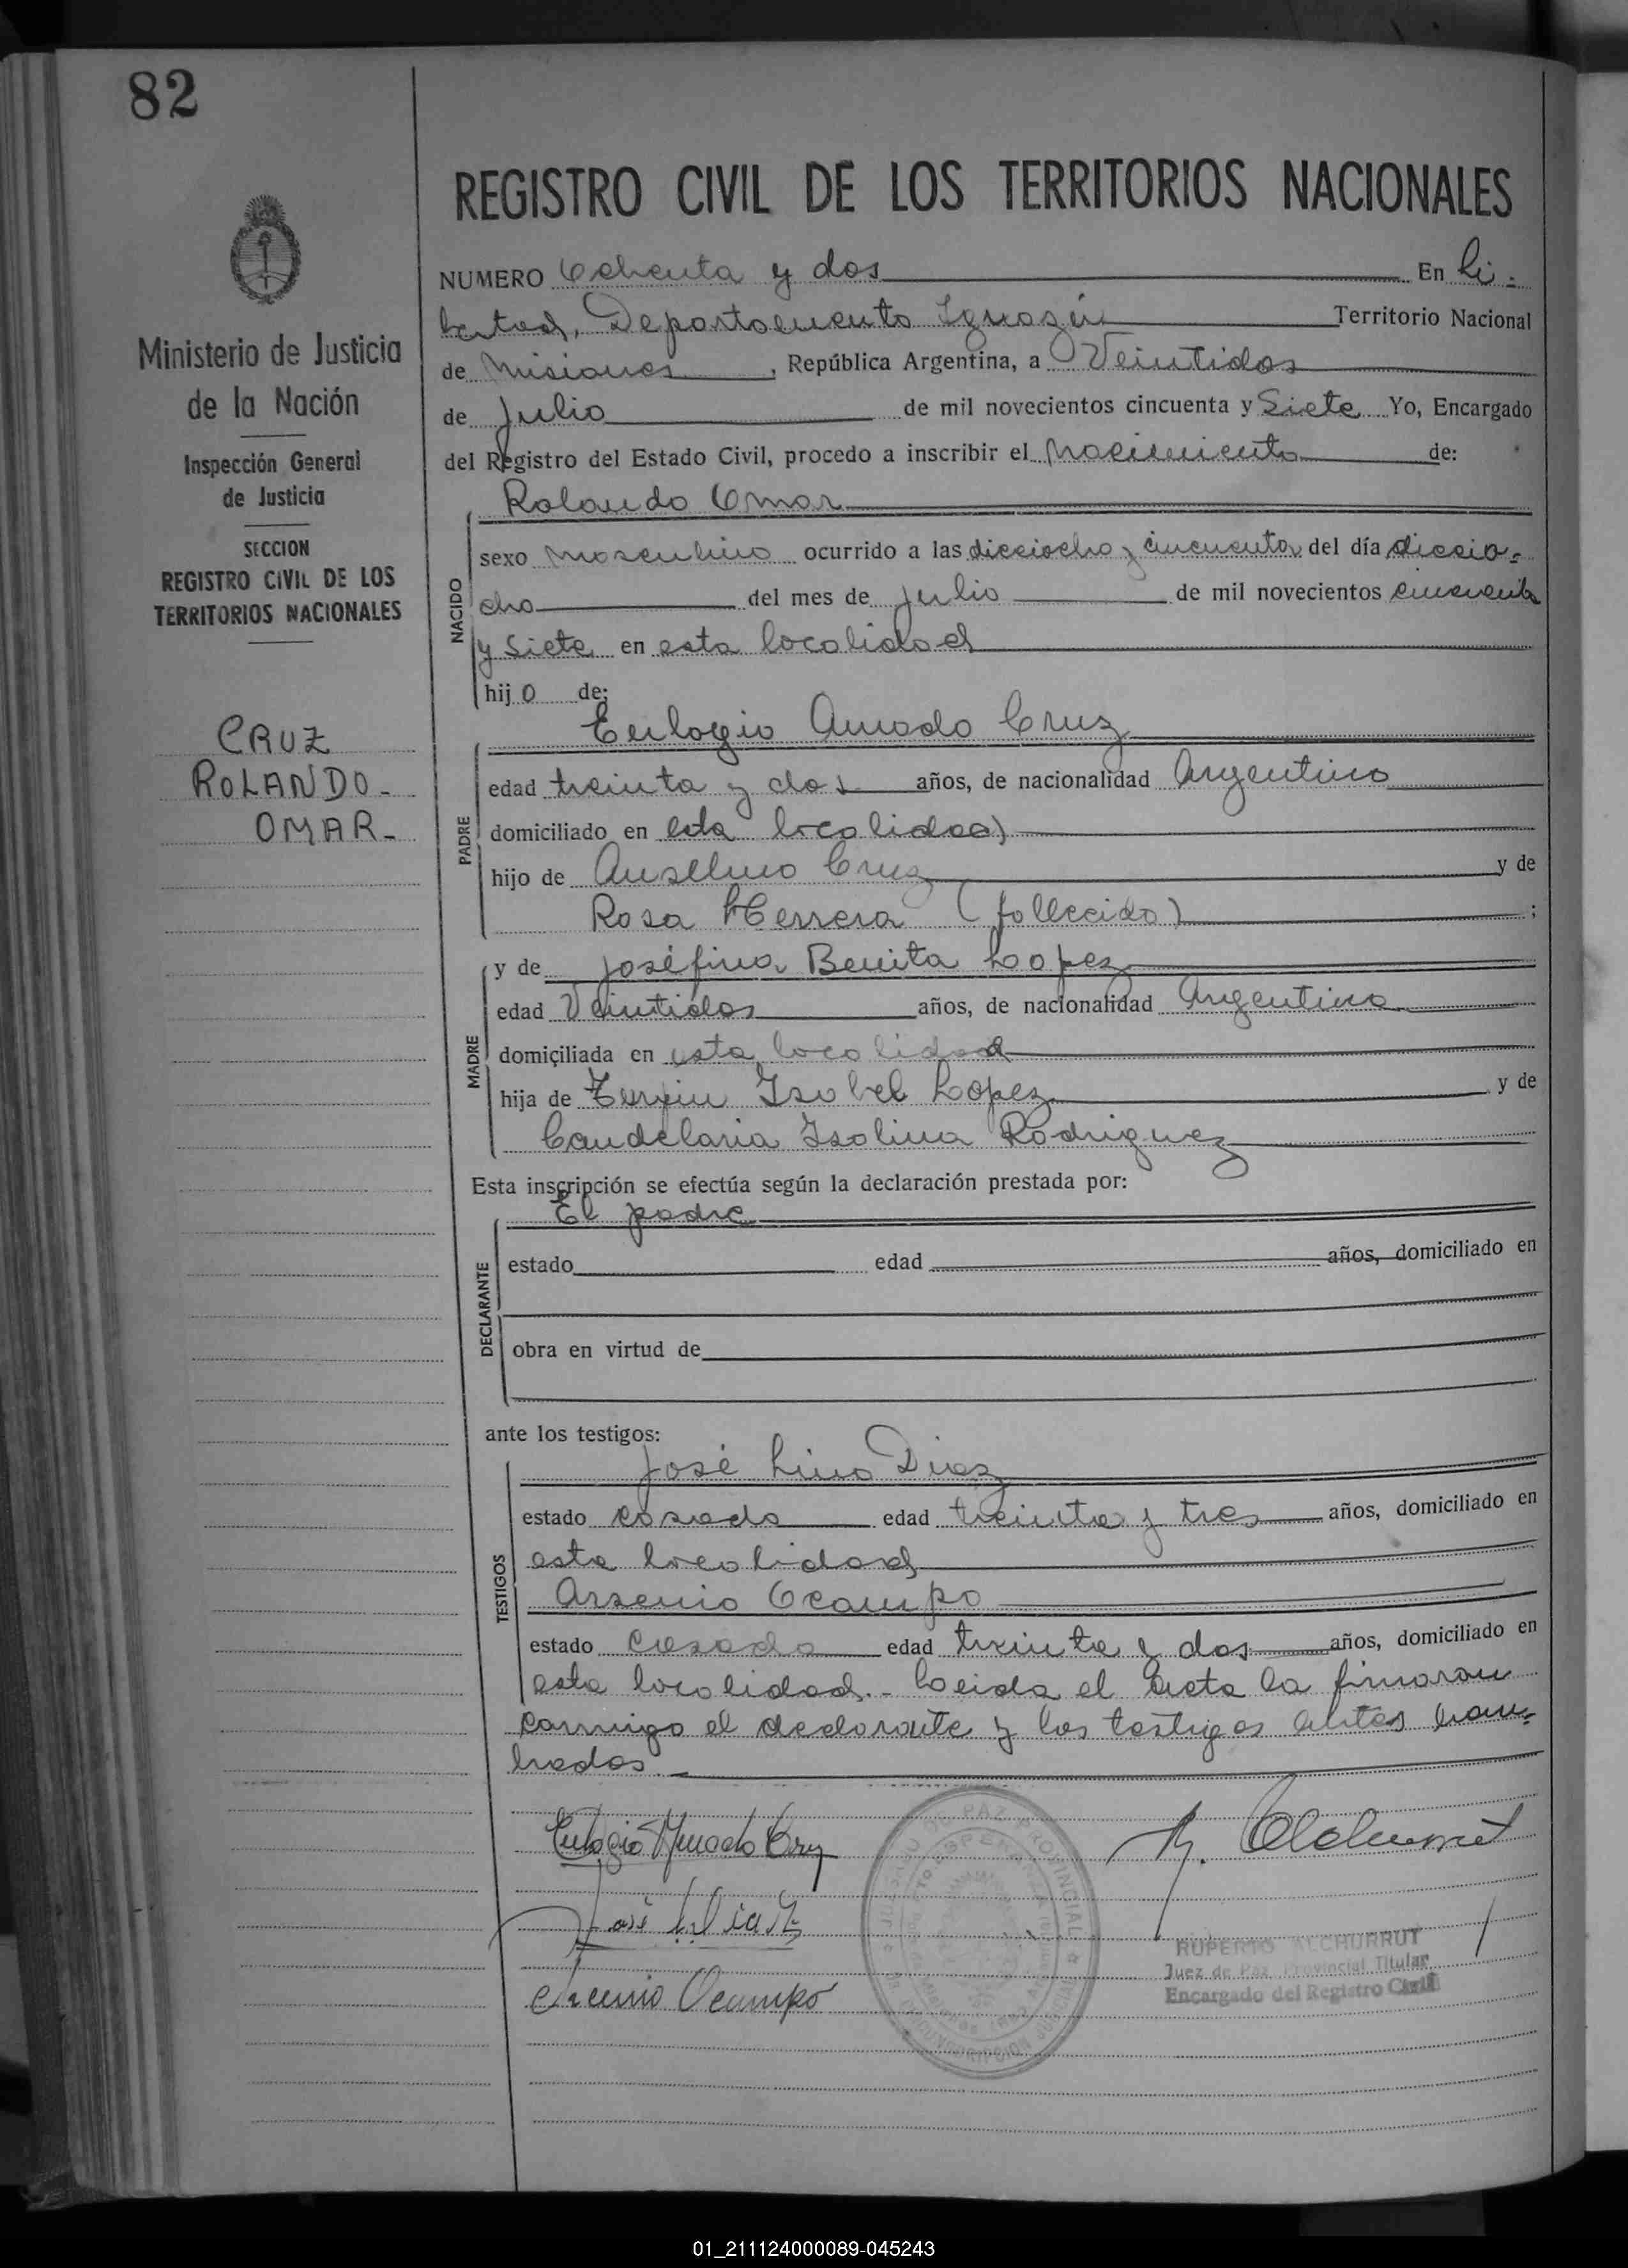 82
REGISTRO CIVIL DE LOS TERRITORIOS NACIONALES
Ministerio de Justicia
de la Nación
Inspección General
de Justicia
SECCION
REGISTRO CIVIL DE LOS
TERRITORIOS NACIONALES
CRUZ
ROLANDO-
OMAR-
NUMERO Ochenta y dos En Li-
bertad, Departamento Iguazú Territorio Nacional
de Misiones, República Argentina, a Veintidos
de Julio de mil novecientos cincuenta y Siete Yo, Encargado
del Registro del Estado Civil, procedo a inscribir el Nacimiento de:
Rolando Omar
NACIDO
sexo masculino ocurrido a las dieciocho y cincuenta del día diecio-
cho del mes de Julio de mil novecientos cincuenta
y Siete en esta localidad
hijo de:
Eulogio Amado Cruz
PADRE
edad treinta y dos años, de nacionalidad Argentino
domiciliado en esta localidad
hijo de Anselmo Cruz y de
Rosa Herrera (fallecida) ;
MADRE
y de Joséfina Benita Lopez
edad Veintidos años, de nacionalidad Argentina
domiciliada en esta localidad
hija de Isabel Lopez y de
Candelaria Isolina Rodriguez
Esta inscripción se efectúa según la declaración prestada por:
El padre
DECLARANTE
estado edad años, domiciliado en
obra en virtud de
ante los testigos:
José Lino Diaz
TESTIGOS
estado casado edad treinta y tres años, domiciliado en
esta localidad
Arsenio Ocampo
estado casado edad treinta y dos años, domiciliado en
esta localidad.- Leida el acta la firmaron
conmigo el declarante y los testigos antes nom-
brados.-
Eulogio Amado Cruz
José L. Diaz
Arsenio Ocampo
R. Alchurrut
PAZ PROVINCIAL
RUPERTO ALCHURRUT
Juez de Paz Provincial Titular
Encargado del Registro Civil
01_211124000089-045243